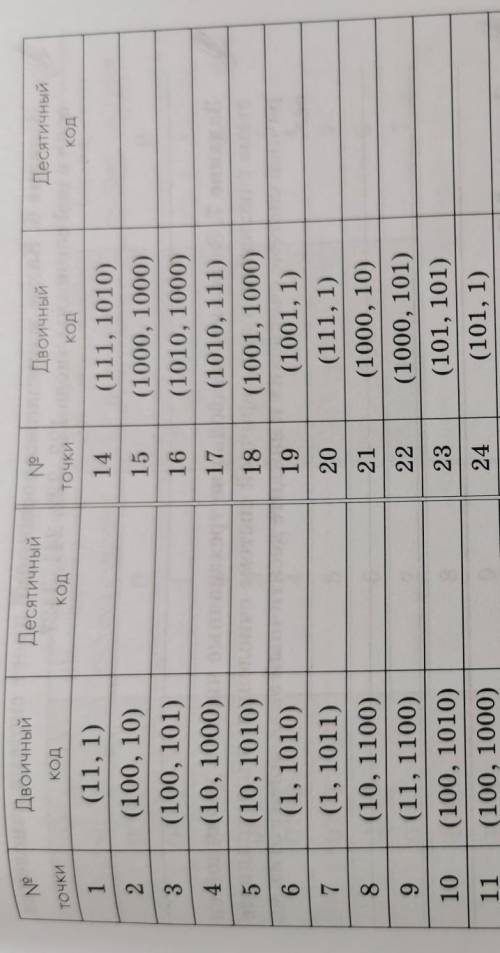 № точки Двоичный код Десятичный код № точки Двоичный код Десятичный код
1 (11, 1) 14 (111, 1010)
2 (100, 10) 15 (1000, 1000)
3 (100, 101) 16 (1010, 1000)
4 (10, 1000) 17 (1010, 111)
5 (10, 1010) 18 (1001, 1000)
6 (1, 1010) 19 (1001, 1)
7 (1, 1011) 20 (111, 1)
8 (10, 1100) 21 (1000, 10)
9 (11, 1100) 22 (1000, 101)
10 (100, 1010) 23 (101, 101)
11 (100, 1000) 24 (101, 1)